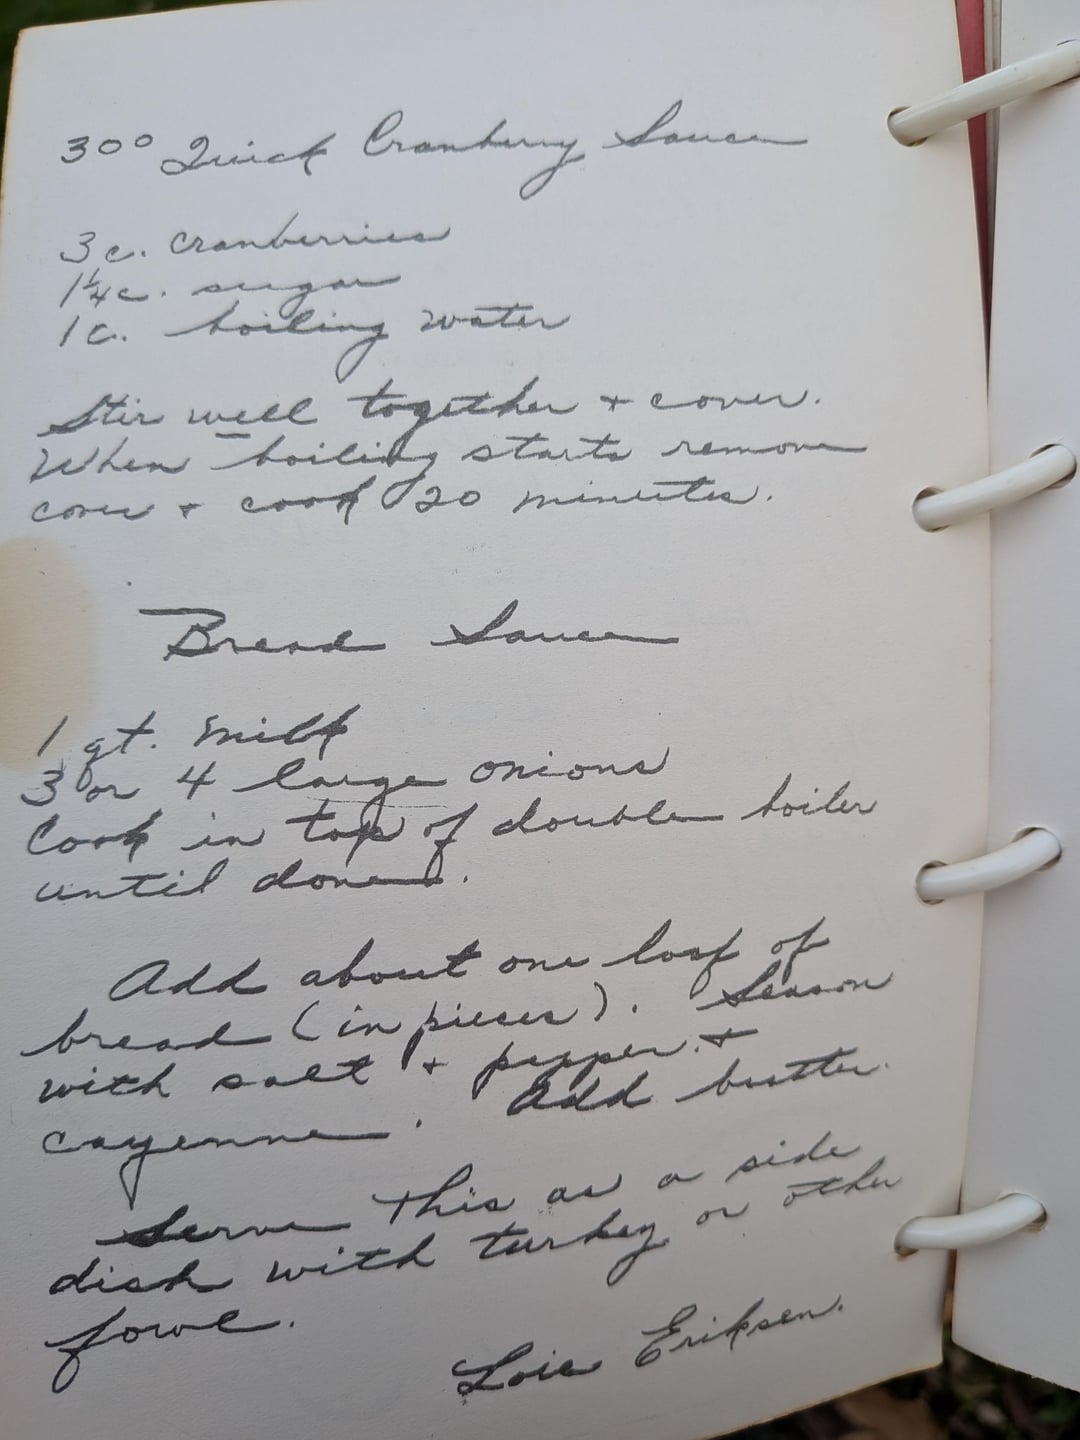 30° Quick Cranberry Sauce
3 c. cranberries
1¼ c. sugar
1 c. boiling water
Stir well together + cover.
When boiling starts remove
cover + cook 20 minutes.
Bread Sauce
1 qt. Milk
3 or 4 large onions
Cook in top of double boiler
until done.
Add about one loaf of
bread (in pieces). Season
with salt + pepper. +
cayenne. Add butter.
Serve this as a side
dish with turkey or other
fowl.
Lois Eriksen.